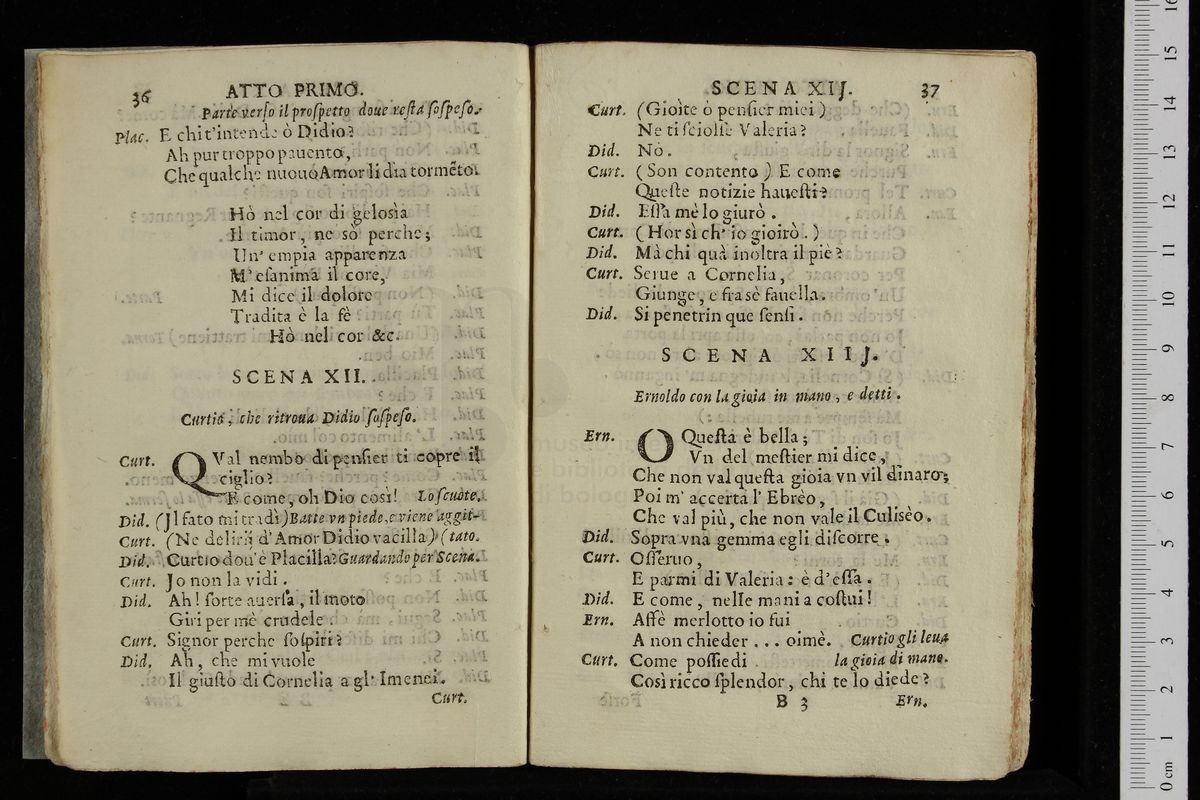 36 ATTO PRIMO.
Parte verſo il proſpetto doue reſta ſoſpeſo.
Plac. E chi t'intende ò Didio?
Ah pur troppo pauento,
Che qualche nuouo Amor li dia tormẽto.
Hò nel cor di gelosìa
Il timor, ne sò perche;
Un' empia apparenza
M' eſanima il core,
Mi dice il dolore
Tradita è la fè
Hò nel cor &c.
SCENA XII.
Curtio, che ritroua Didio ſoſpeſo.
Curt. QVal nembo di penſier ti copre il
ciglio?
E come, oh Dio così! Lo ſcuote.
Did. (Jl fato mi tradì) Batte vn piede, e viene aggit-
Curt. (Ne delirij d'Amor Didio vacilla) (tato.
Did. Curtio dou'è Placilla? Guardando per Scena.
Curt. Jo non la vidi.
Did. Ah! ſorte auerſa, il moto
Giri per mè crudele.
Curt. Signor perche ſoſpiri?
Did. Ah, che mi vuole
Il giuſto di Cornelia a gl' Imenei.
Curt.
SCENA XIJ. 37
Curt. (Gioìte ò penſier miei)
Ne ti ſciolſe Valeria?
Did. Nò.
Curt. (Son contento) E come
Queſte notizie haueſti?
Did. Eſſa mè lo giurò.
Curt. (Hor sì ch' io gioirò.)
Did. Mà chi quà inoltra il piè?
Curt. Serue a Cornelia,
Giunge, e fra sè fauella.
Did. Si penetrin que ſenſi.
SCENA XIIJ.
Ernoldo con la gioia in mano, e detti.
Ern. O Queſta è bella;
Vn del meſtier mi dice,
Che non val queſta gioia vn vil dinaro;
Poi m' accerta l' Ebrèo,
Che val più, che non vale il Culisèo.
Did. Sopra vna gemma egli diſcorre.
Curt. Oſſeruo,
E parmi di Valeria: è d'eſſa.
Did. E come, nelle mani a coſtui!
Ern. Affè merlotto io fui
A non chieder ... oimè. Curtio gli leua
Curt. Come poſſiedi la gioia di mano.
Così ricco ſplendor, chi te lo diede?
B 3 Ern.